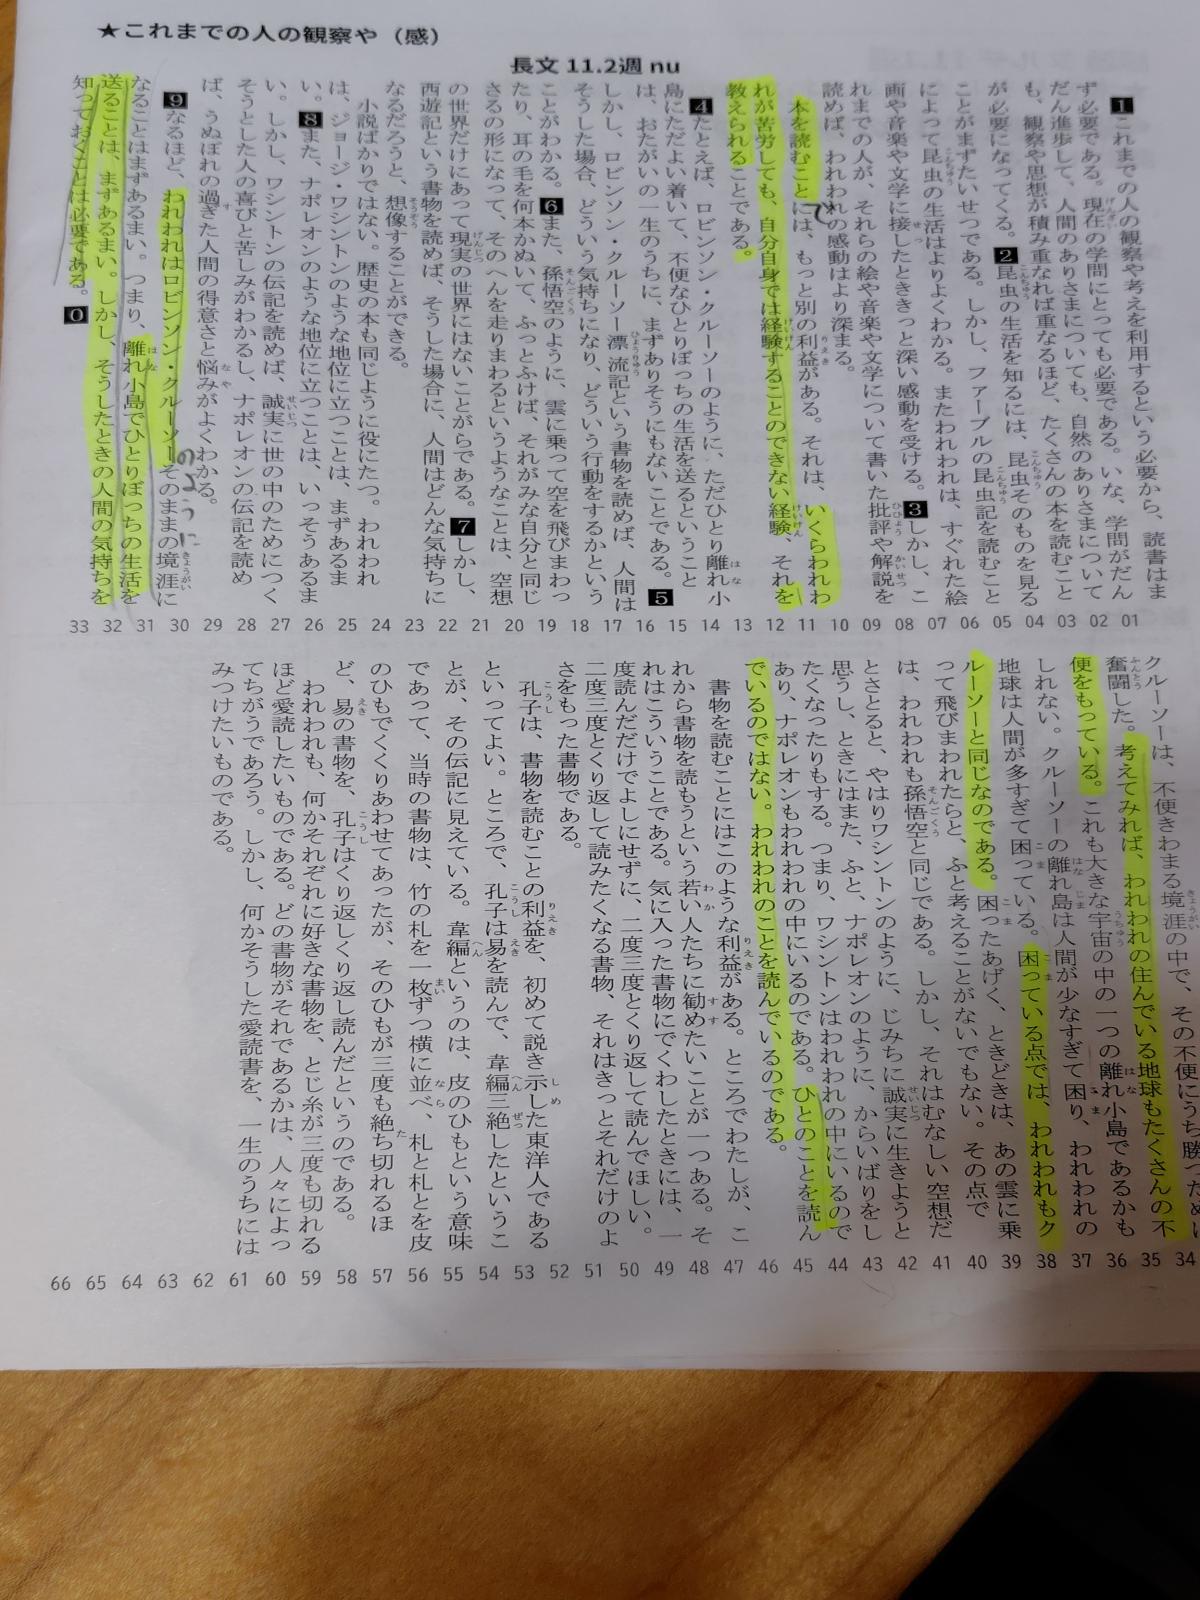 ★これまでの人の観察や（感）
長文 11.2週 nu
1これまでの人の観察や考えを利用するという必要から、読書はま
ず必要である。現在の学問にとっても必要である。いな、学問がだん
だん進歩して、人間のありさまについても、自然のありさまについて
も、観察や思想が積み重なれば重なるほど、たくさんの本を読むこと
が必要になってくる。2昆虫の生活を知るには、昆虫そのものを見る
ことがまずたいせつである。しかし、ファーブルの昆虫記を読むこと
によって昆虫の生活はよりよくわかる。またわれわれは、すぐれた絵
画や音楽や文学に接したとききっと深い感動を受ける。3しかし、こ
れまでの人が、それらの絵や音楽や文学について書いた批評や解説を
読めば、われわれの感動はより深まる。
本を読むことには、もっと別の利益がある。それは、いくらわれわ
れが苦労しても、自分自身では経験することのできない経験、それを
教えられることである。
4たとえば、ロビンソン・クルーソーのように、ただひとり離れ小
島にただよい着いて、不便なひとりぼっちの生活を送るということ
は、おたがいの一生のうちに、まずありそうにもないことである。5
しかし、ロビンソン・クルーソー漂流記という書物を読めば、人間は
そうした場合、どういう気持ちになり、どういう行動をするかという
ことがわかる。6また、孫悟空のように、雲に乗って空を飛びまわっ
たり、耳の毛を何本かぬいて、ふっとふけば、それがみな自分と同じ
さるの形になって、そのへんを走りまわるというようなことは、空想
の世界だけにあって現実の世界にはないことがらである。7しかし、
西遊記という書物を読めば、そうした場合に、人間はどんな気持ちに
なるだろうと、想像することができる。
小説ばかりではない。歴史の本も同じように役にたつ。われわれ
は、ジョージ・ワシントンのような地位に立つことは、まずあるま
い。8また、ナポレオンのような地位に立つことは、いっそうあるま
い。しかし、ワシントンの伝記を読めば、誠実に世の中のためにつく
そうとした人の喜びと苦しみがわかるし、ナポレオンの伝記を読め
ば、うぬぼれの過ぎた人間の得意さと悩みがよくわかる。
9なるほど、われわれはロビンソン・クルーソーそのままの境涯に
のように
なることはまずあるまい。つまり、離れ小島でひとりぼっちの生活を
送ることは、まずあるまい。しかし、そうしたときの人間の気持ちを
知っておくことは必要である。0
33 32 31 30 29 28 27 26 25 24 23 22 21 20 19 18 17 16 15 14 13 12 11 10 09 08 07 06 05 04 03 02 01
クルーソーは、不便きわまる境涯の中で、その不便にうち勝つために
奮闘した。考えてみれば、われわれの住んでいる地球もたくさんの不
便をもっている。これも大きな宇宙の中の一つの離れ小島であるかも
しれない。クルーソーの離れ島は人間が少なすぎて困り、われわれの
地球は人間が多すぎて困っている。困っている点では、われわれもク
ルーソーと同じなのである。困ったあげく、ときどきは、あの雲に乗
って飛びまわれたらと、ふと考えることがないでもない。その点で
は、われわれも孫悟空と同じである。しかし、それはむなしい空想だ
とさとると、やはりワシントンのように、じみちに誠実に生きようと
思うし、ときにはまた、ふと、ナポレオンのように、からいばりをし
たくなったりもする。つまり、ワシントンはわれわれの中にいるので
あり、ナポレオンもわれわれの中にいるのである。ひとのことを読ん
でいるのではない。われわれのことを読んでいるのである。
書物を読むことにはこのような利益がある。ところでわたしが、こ
れから書物を読もうという若い人たちに勧めたいことが一つある。そ
れはこういうことである。気に入った書物にでくわしたときには、一
度読んだだけでよしにせずに、二度三度とくり返して読んでほしい。
二度三度とくり返して読みたくなる書物、それはきっとそれだけのよ
さをもった書物である。
孔子は、書物を読むことの利益を、初めて説き示した東洋人である
といってよい。ところで、孔子は易を読んで、韋編三絶したというこ
とが、その伝記に見えている。韋編というのは、皮のひもという意味
であって、当時の書物は、竹の札を一枚ずつ横に並べ、札と札とを皮
のひもでくくりあわせてあったが、そのひもが三度も絶ち切れるほ
ど、易の書物を、孔子はくり返しくり返し読んだというのである。
われわれも、何かそれぞれに好きな書物を、とじ糸が三度も切れる
ほど愛読したいものである。どの書物がそれであるかは、人々によっ
てちがうであろう。しかし、何かそうした愛読書を、一生のうちには
みつけたいものである。
66 65 64 63 62 61 60 59 58 57 56 55 54 53 52 51 50 49 48 47 46 45 44 43 42 41 40 39 38 37 36 35 34